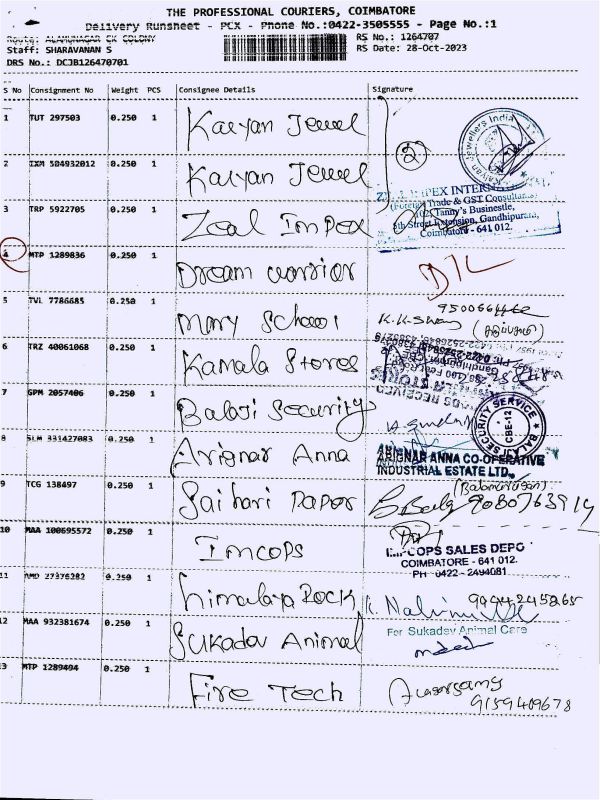 THE PROFESSIONAL COURIERS, COIMBATORE
Delivery Runsheet - PCX - Phone No.:0422-3505555 - Page No.:1
Route: ALAMUNAGAR CK COLONY RS No.: 1264707
Staff: SHARAVANAN S RS Date: 28-Oct-2023
DRS No.: DCJB126470701
S No Consignment No Weight PCS Consignee Details Signature
1 TUT 297503 0.250 1 Kalyan Jewel
Kalyan Jewellers India
2 IXM 504932012 0.250 1 Kalyan Jewel
2
3 TRP 5922705 0.250 1 Zeal Impex
IMPEX
(Foreign Trade & GST Consultants)
Tanny's Businestle,
5th Street Extension, Gandhipuram,
Coimbatore - 641 012.
4 MTP 1289836 0.250 1 Dream warrior D/L
5 TVL 7786685 0.250 1 Mary School
6 TRZ 40061068 0.250 1 Kamala Stores
7 GPM 2057406 0.250 1 Balaji Security
BALAJI SECURITY SERVICE
CBE-12
8 SLM 331427083 0.250 1 Arignar Anna
ARIGNAR ANNA CO-OPERATIVE
INDUSTRIAL ESTATE LTD.,
9 TCG 138497 0.250 1 Saihari Paper
10 MAA 100695572 0.250 1 Imcops
IMPCOPS SALES DEPO
COIMBATORE - 641 012.
PH : 0422 - 2494081
11 AMD 27376282 0.250 1 Himalaya Rock
12 MAA 932381674 0.250 1 Sukadev Animal
For Sukadev Animal Care
13 MTP 1289494 0.250 1 Fire Tech
9159409678